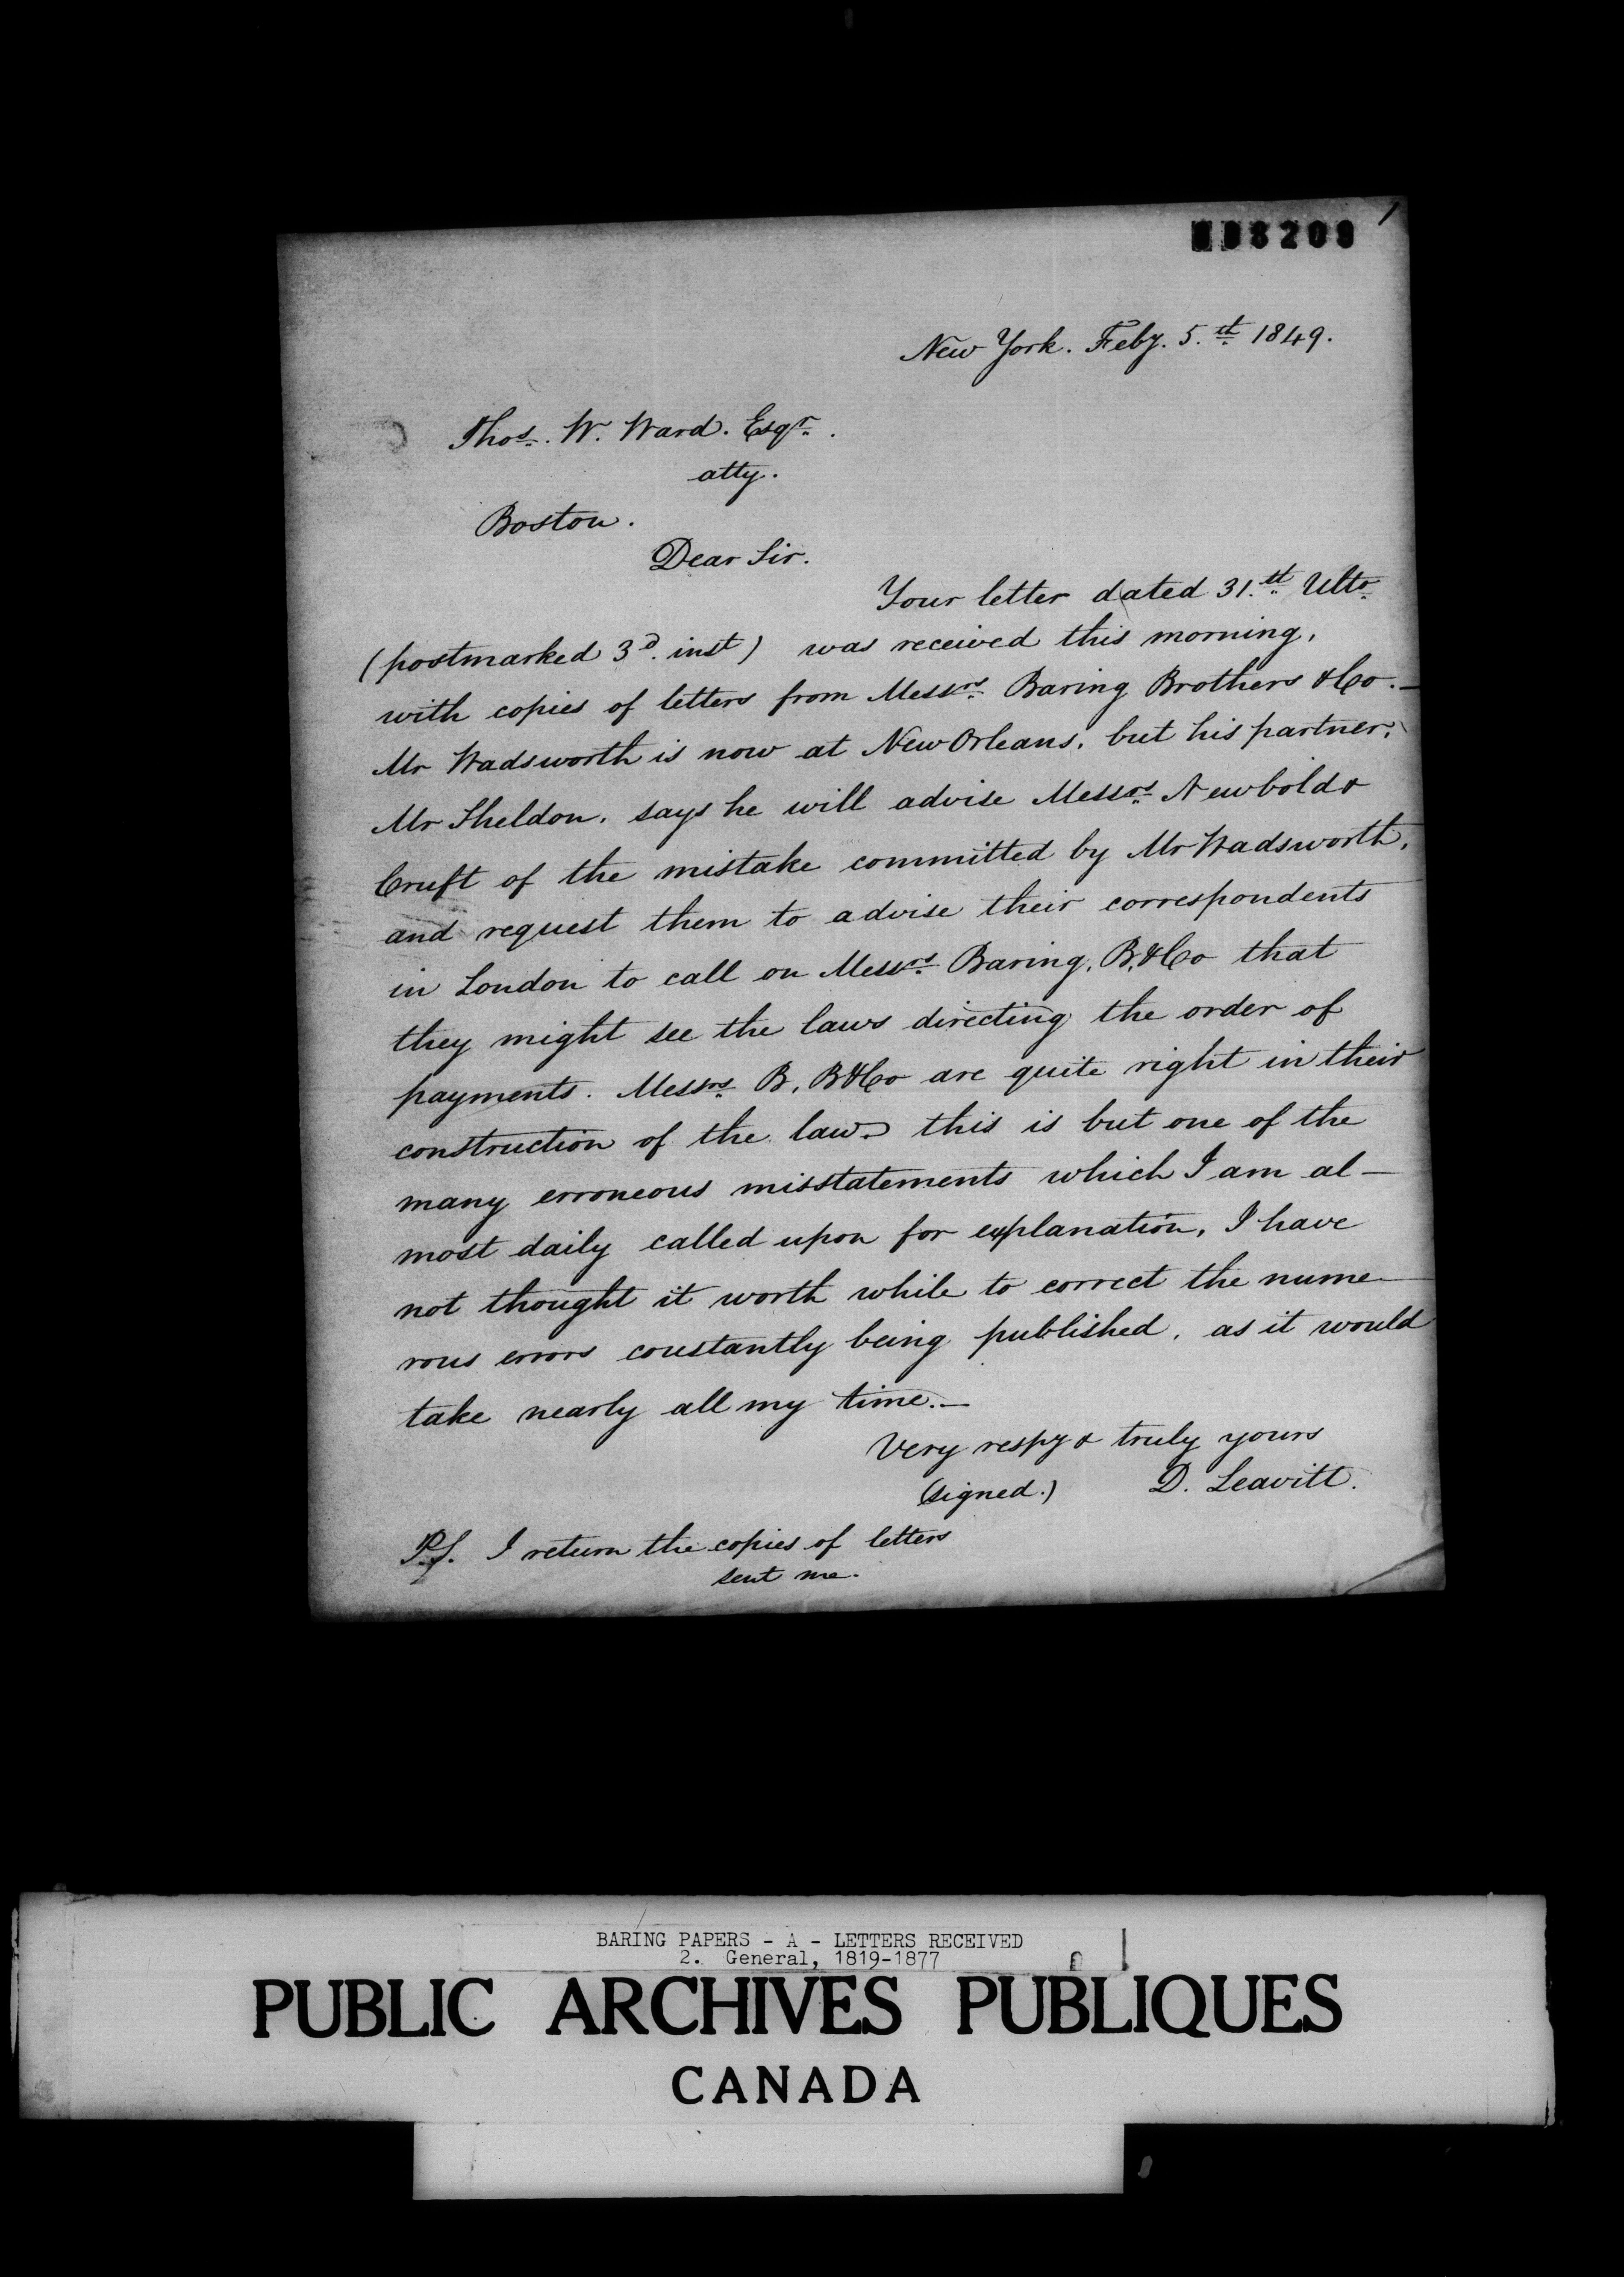 1
New York. Feby. 5.th 1849.
Thos. W. Ward. Esqr.
atty.
Boston.
Dear Sir.
Your letter dated 31.st Ulto.
(postmarked 3d. inst) was received this morning,
with copies of letters from Messrs. Baring Brothers & Co.—
Mr Wadsworth is now at New Orleans, but his partner,
Mr Sheldon, says he will advise Messrs. Newbold &
Cruft of the mistake committed by Mr Wadsworth,
and request them to advise their correspondents
in London to call on Messrs. Baring, B, & Co that
they might see the laws directing the order of
payments. Messrs. B, B & Co are quite right in their
construction of the law. this is but one of the
many erroneous misstatements which I am al-
most daily called upon for explanation, I have
not thought it worth while to correct the nume-
rous errors constantly being published, as it would
take nearly all my time.—
Very respy & truly yours
(signed.) D. Leavitt.
P.S. I return the copies of letters
sent me.
BARING PAPERS - A - LETTERS RECEIVED
2. General, 1819-1877
PUBLIC ARCHIVES PUBLIQUES
CANADA